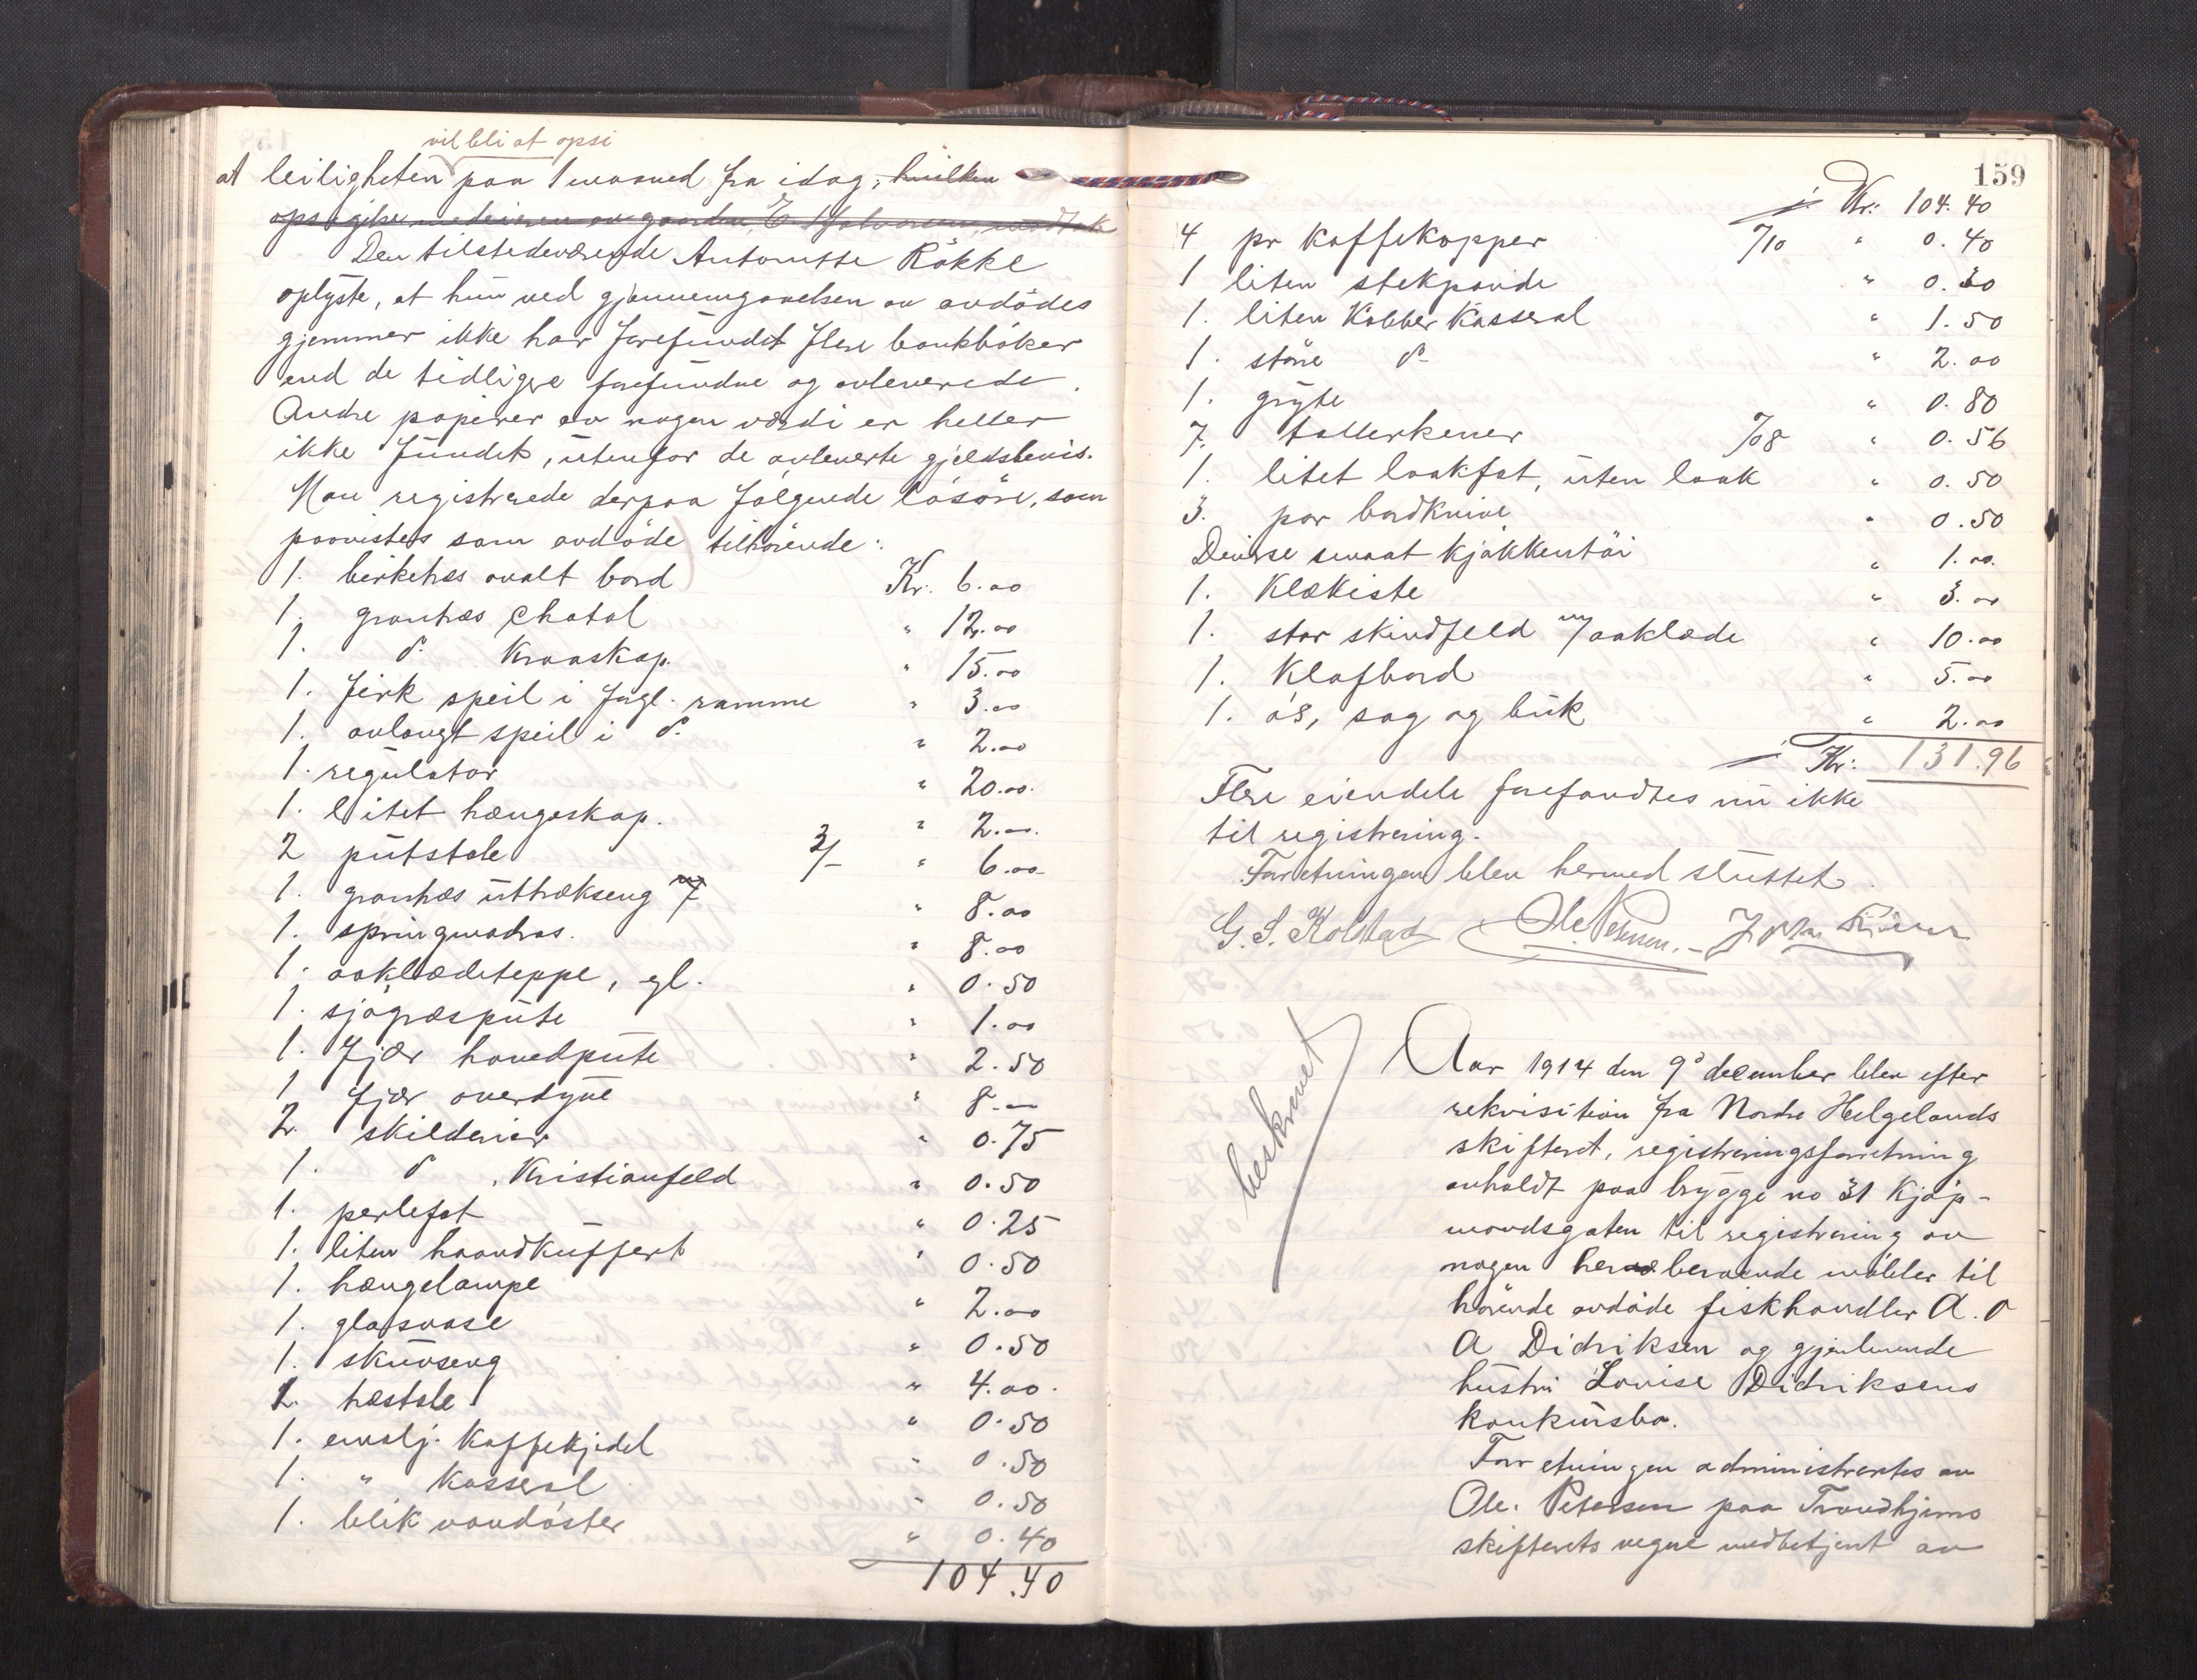 vil bli at opsi
at leiligheten paa 1 maaned fra idag, hvilken
opsigelse medeieren av gaarden, E. Halvorsen, mottok
Den tilstedeværende Antonette Rökke
oplyste, at hun ved gjennemgaaelsen av avdödes
gjemmer ikke har forefundet flere bankböker
end de tidligere forefundne og avleverede.
Andre papirer av nogen værdi er heller
ikke fundet, utenfor de avleverte gjeldsbevis.
Man registrerede derpaa fölgende lösöre, som
paavistes som avdöde tilhörende:
1. birketræs ovalt bord Kr. 6.00
1. grantræs chatol " 12.00
1. do. Kraaskap. " 15.00
1. firk speil i forgl. ramme " 3.00
1. avlangt speil i do. " 2.00
1. regulator " 20.00.
1. litet hængeskap. " 2.00.
2 putstole 3/- " 6.00
1. grantræs uttrækseng m/ " 8.00
1. springmadras. " 8.00
1. aaklædeteppe, gl. " 0.50
1. sjögræspute " 1.00
1. fjær hovedpute " 2.50
1 fjær overdyne " 8.00
2. skilderier " 0.75
1. do , Kristianfeld " 0.50
1. perlefat " 0.25
1. liten haandkuffert " 0.50
1. hængelampe " 2.00
1. glasvase " 0.50
1. skuvseng " 4.00.
2. træstole " 0.50
1. emalj. Kaffekjedel " 0.50
1. " Kasserol " 0.50
1. blik vandöster " 0.40
104.40
159
Kr: 104.40
4 pr Kaffekopper /10 " 0.40
1 liten stekpande " 0.30
1. liten Kobber Kasserol " 1.50
1. större do " 2.00
1. gryte " 0.80
7. tallerkener /08 " 0.56
1. litet laakfat, uten laak " 0.50
3. par bordknive " 0.50
Diverse smaat kjökkentöi " 1.00.
1. Klækiste " 3.00
1. stor skindfeld m/ aaklæde " 10.00
1. Klafbord " 5.00
1. ös, sag og buk " 2.00
Kr: 131.96
Flere eiendele forefandtes nu ikke
til registrering.
Forretningen blev hermed sluttet.
G. S. Kolstad Ole Petersen.
beskrevet
Aar 1914 den 9de december blev efter
rekvisition fra Nordre Helgelands
skifteret, registreringsforretning
avholdt paa brygge no 31 Kjöp-
mandsgaten til registrering av
nogen her beroende möbler til
hörende avdöde fiskhandler A. O
A Didriksen og gjenlevende
hustru Lovise Didriksens
konkursbo.
Forretningen administrertes av
Ole. Petersen paa Trondhjems
skifterets vegne medbetjent av